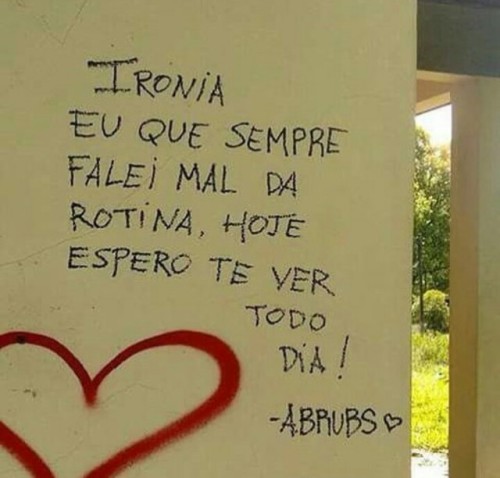 IRONIA
EU QUE SEMPRE
FALEI MAL DA
ROTINA, HOJE
ESPERO TE VER
TODO
DIA!
-ABRUBS♡